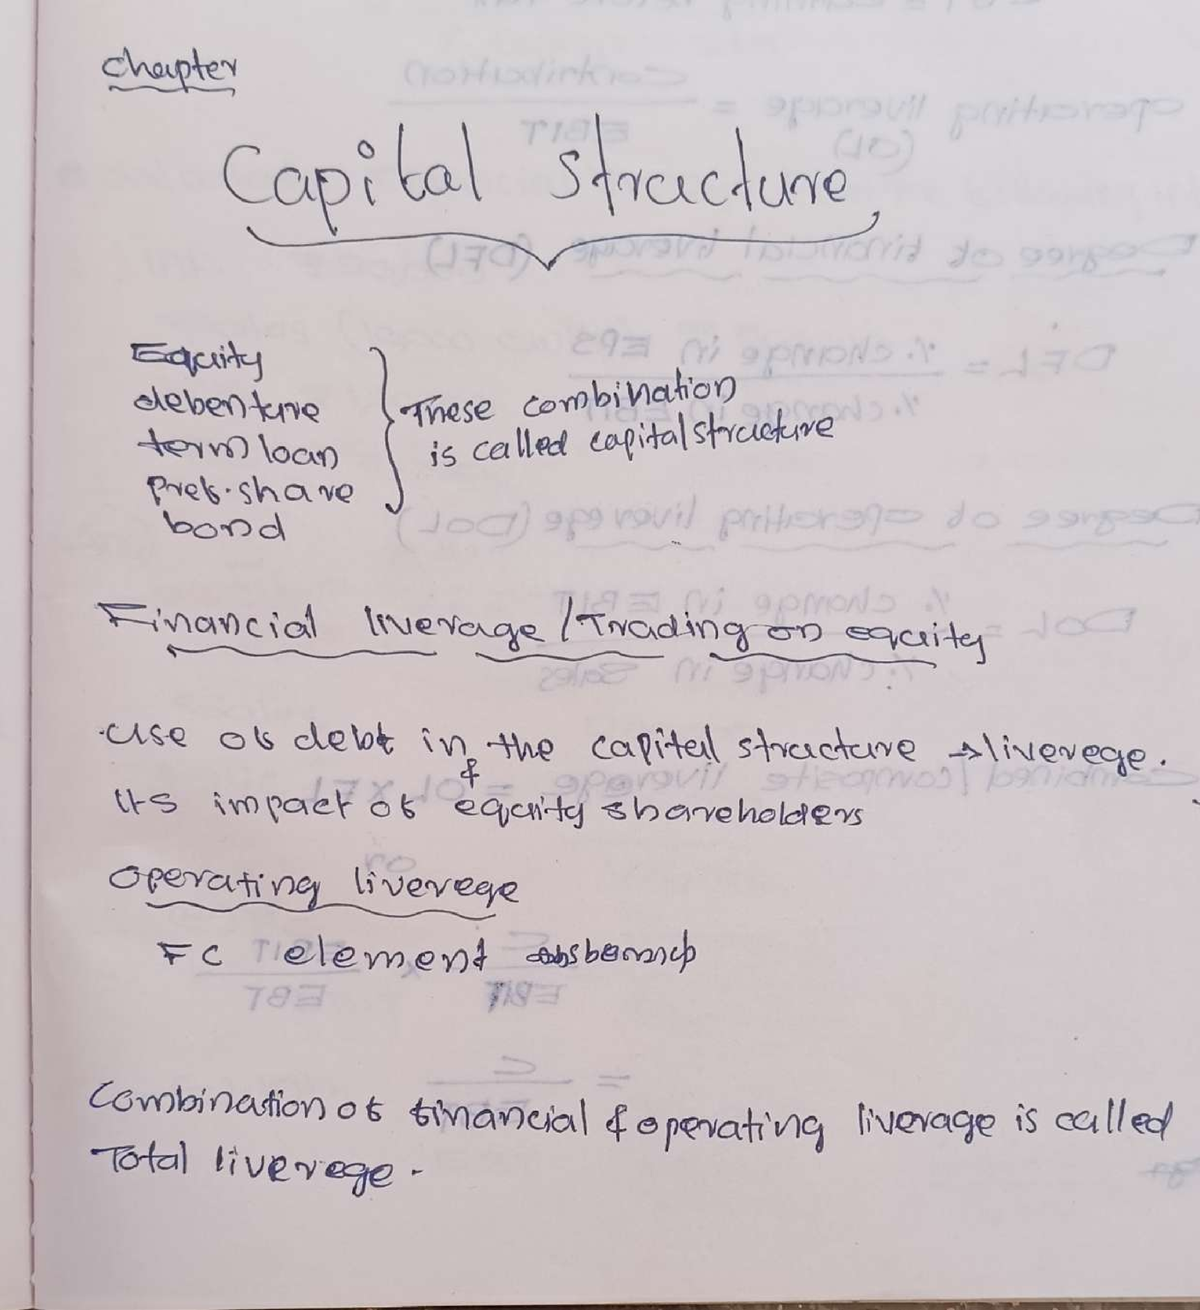 chapter
Capital structure
Equity
debenture
term loan
Pref. share
bond
These combination
is called capital structure
Financial liverage / Trading on equity
. Use of debt in the capital structure → liverege.
&
Its impact of equity shareholders
Operating liverege
FC element
Combination of financial & operating liverage is called
Total liverege.